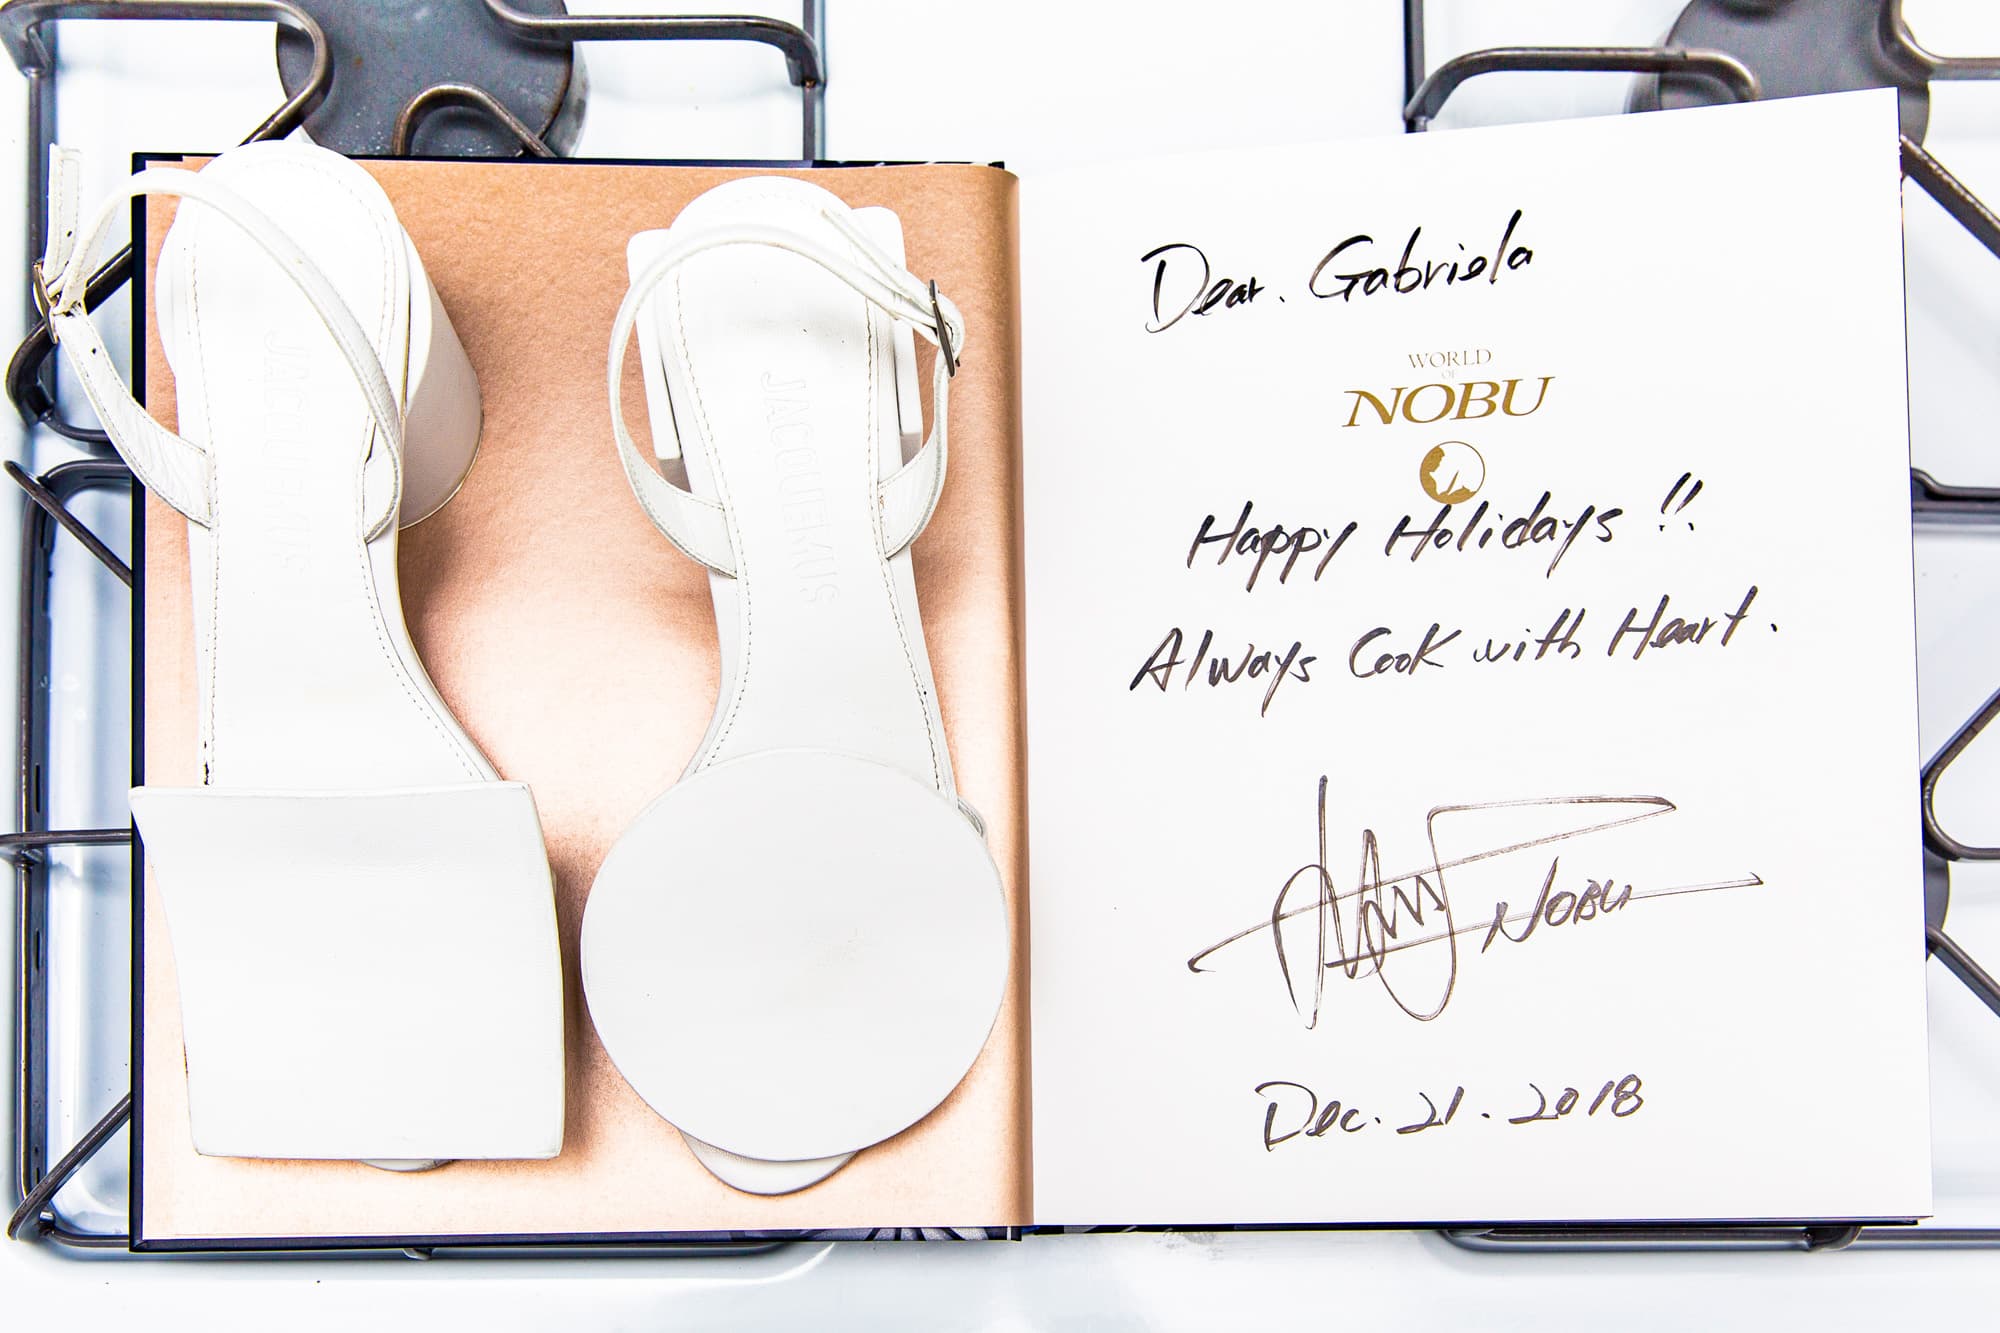 JACQUEMUS
JACQUEMUS
Dear. Gabriela
WORLD
OF
NOBU
Happy Holidays !!
Always Cook with Heart.
NOBU
Dec. 21. 2018